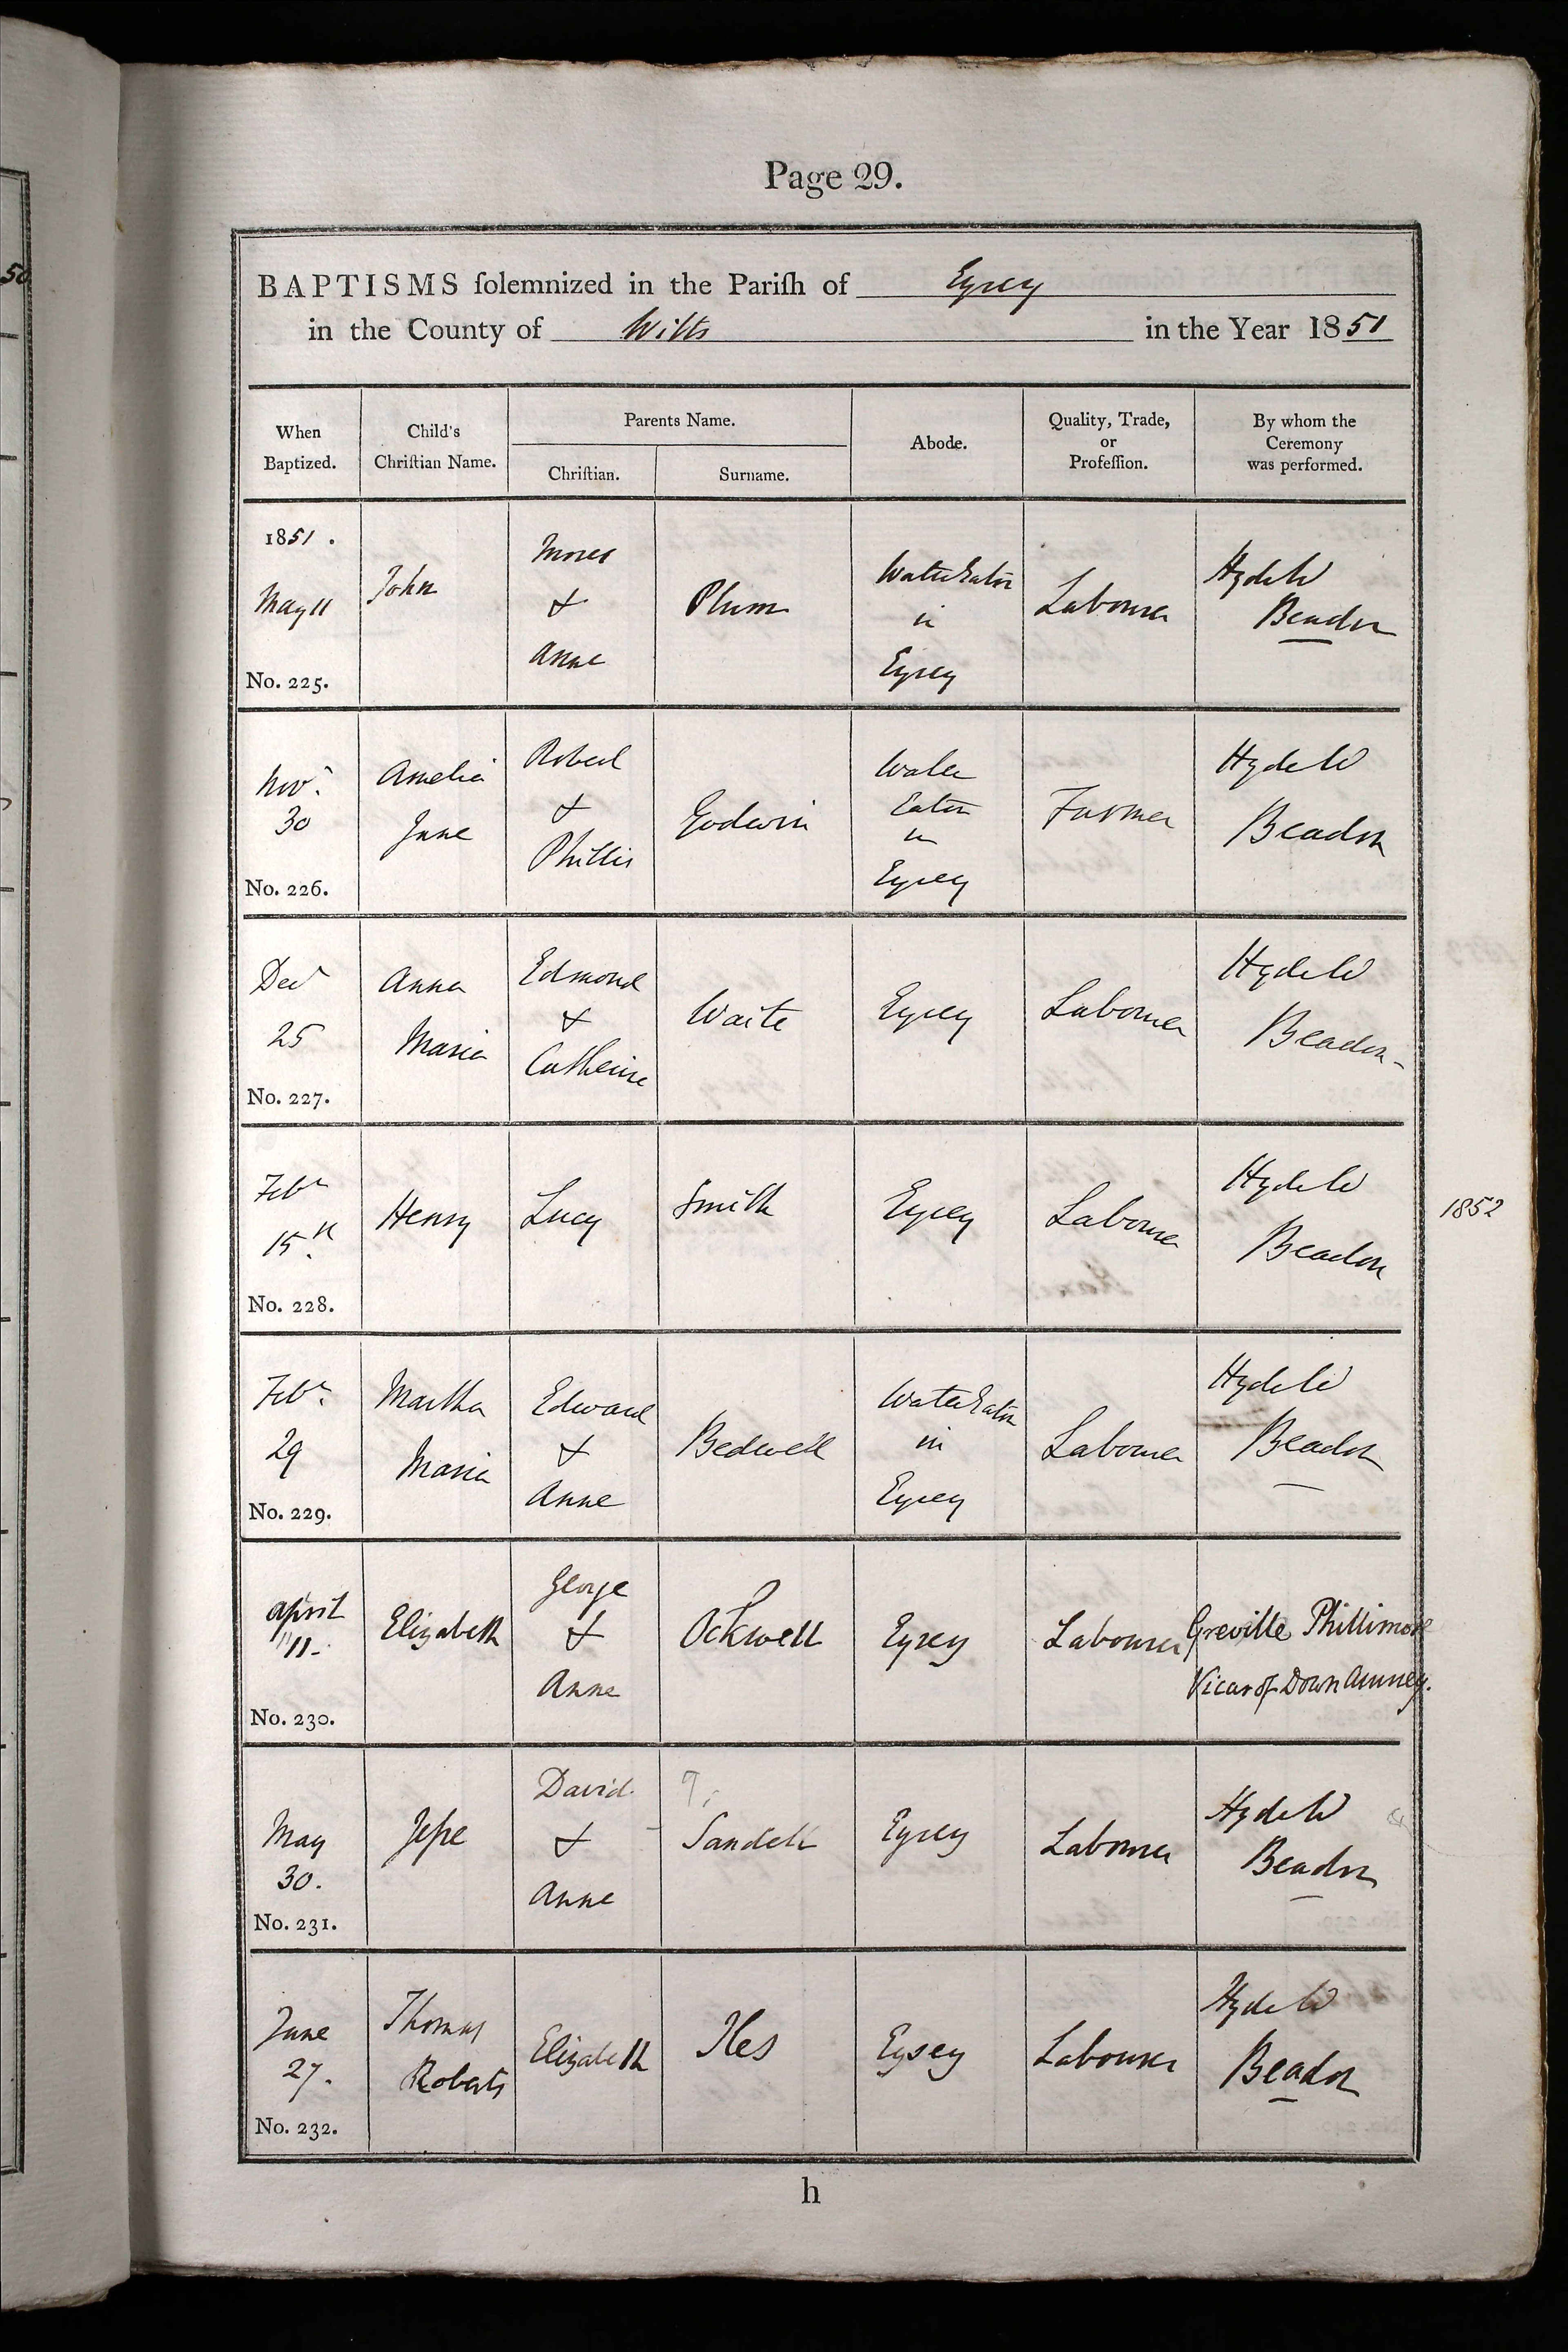 50
Page 29.
BAPTISMS ſolemnized in the Pariſh of Eysey
in the County of Wilts in the Year 1851
When
Baptized.
Child's
Chriſtian Name.
Parents Name.
Chriſtian.
Surname.
Abode.
Quality, Trade,
or
Profeſſion.
By whom the
Ceremony
was performed.
1851.
May 11
No. 225.
John
Moses
&
Anne
Plum
Water Eaton
in
Eysey
Labourer
Hyde W
Beadon
Novr
30
No. 226.
Amelia
Jane
Robert
&
Phillis
Godwin
Water
Eaton
in
Eysey
Farmer
Hyde W
Beadon
Decr
25
No. 227.
Anna
Maria
Edmond
&
Catherine
Waite
Eysey
Labourer
Hyde W
Beadon
Febr
15th
No. 228.
Henry
Lucy
Smith
Eysey
Labourer
Hyde W
Beadon
1852
Febr
29
No. 229.
Martha
Maria
Edward
&
Anne
Bedwell
Water Eaton
in
Eysey
Labourer
Hyde W
Beadon
April
11
No. 230.
Elizabeth
George
&
Anne
Ockwell
Eysey
Labourer
Greville Phillimore
Vicar of Down Amney.
May
30.
No. 231.
Jeſse
David
&
Anne
Sandell
Eysey
Labourer
Hyde W
Beadon
June
27.
No. 232.
Thomas
Roberts
Elizabeth
Iles
Eysey
Labourer
Hyde W
Beadon
h